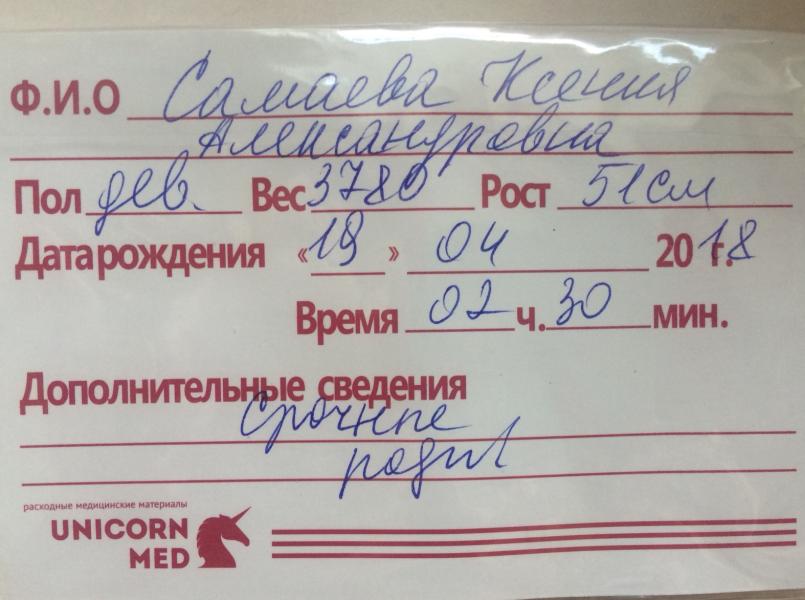 Ф.И.О Самаева Ксения
Александровна
Пол дев. Вес 3780 Рост 51см
Дата рождения «19» 04 2018 г.
Время 02 ч. 30 мин.
Дополнительные сведения
Срочные
роды
расходные медицинские материалы
UNICORN
MED